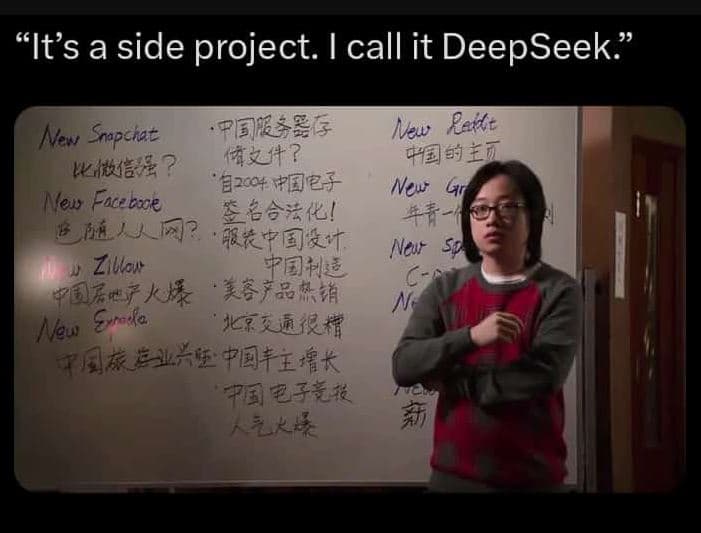 “It’s a side project. I call it DeepSeek.”
New Snapchat
比微信强？
New Facebook
人人网？
New Zillow
中国房地产火爆
New Expedia
中国旅游业兴旺
·中国服务器存
储文件？
·自2004中国电子
签名合法化！
·服装中国设计
中国制造
·美容产品热销
·北京交通很糟
·中国车主增长
·中国电子竞技
人气火爆
New Reddit
中国的主页
New
年青一
New
New
新